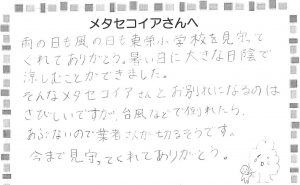 メタセコイアさんへ
雨の日も風の日も東栄小学校を見守って
くれてありがとう。暑い日に大きな日陰で
涼しむことができました。
そんなメタセコイアさんとお別れになるのは
さびしいですが、台風などで倒れたら、
あぶないので業者さんが切るそうです。
今まで見守ってくれてありがとう。